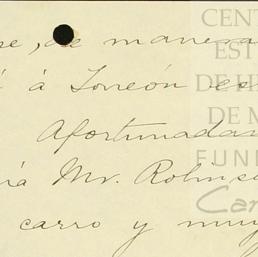 se, de manera
á Torreón es
Afortunadam
rá Mr. Robinso
carro y muy
CENT
EST
DE H
DE M
FUND
Car